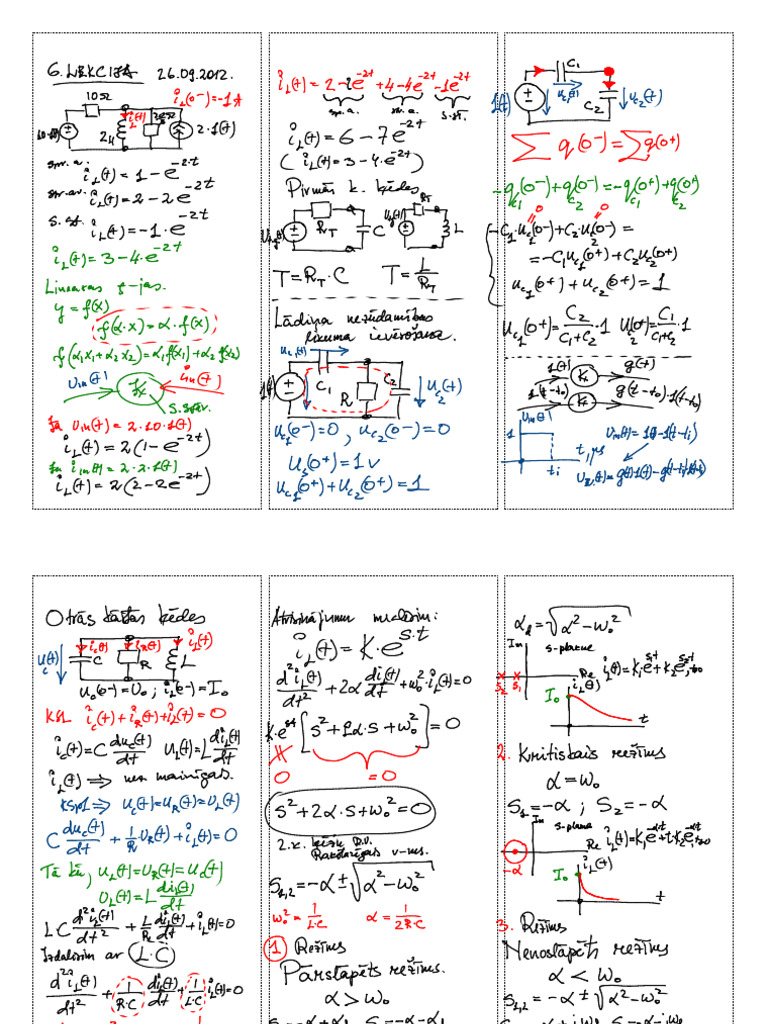 6. LEKCIJA 26.09.2012.
10Ω
i_L(0-)=-1A
i_L(t)
2H
2·1(t)
i_L(t)=1-e^{-2·t}
i_L(t)=2-2e^{-2t}
s.st. i_L(t)=-1·e^{-2t}
i_L(t)=3-4e^{-2t}
Linearas f-jas.
y=f(x)
f(α·x)=α·f(x)
f(α₁x₁+α₂x₂)=α₁f(x₁)+α₂f(x₂)
U_in(t) i_in(t)
s.stāv.
Ja U_in(t)=2·10·1(t)
i_L(t)=2(1-e^{-2t})
Ja i_in(t)=2·2·1(t)
i_L(t)=2(2-2e^{-2t})
i_L(t)=2-2e^{-2t}+4-4e^{-2t}-1e^{-2t}
i_L(t)=6-7e^{-2t}
(i_L(t)=3-4·e^{-2t})
Pirmās k. ķēdes
R_T C R_T L
T=R_T·C T=L/R_T
Lādiņa nezūdamības
likuma ievērošana.
u_{c1}(t)
1(t) C₁ R C₂ u_{c2}(t)
u_{c1}(0-)=0, u_{c2}(0-)=0
U_s(0+)=1v
u_{c1}(0+)+u_{c2}(0+)=1
C₁
1(t) u_{c1}(t) C₂ u_{c2}(t)
∑q(0-)=∑q(0+)
-q_{c1}(0-)+q_{c2}(0-)=-q_{c1}(0+)+q_{c2}(0+)
0 0
-C₁·u_{c1}(0-)+C₂·u_{c2}(0-)=
=-C₁u_{c1}(0+)+C₂u_{c2}(0+)
u_{c1}(0+)+u_{c2}(0+)=1
u_{c1}(0+)=C₂/(C₁+C₂)·1 u_{c2}(0+)=C₁/(C₁+C₂)·1
1(t) Kx g(t)
1(t-t₀) Kx g(t-t₀)·1(t-t₀)
U_in(t)
1 U_in(t)=1(t)-1(t-t_i)
t, μs
t_i
Otrās kārtas ķēdes
u_c(t) i_c(t) C i_R(t) R L i_L(t)
u_c(0-)=U₀; i_L(0-)=I₀
KSL i_c(t)+i_R(t)+i_L(t)=0
i_c(t)=C du_c(t)/dt U_L(t)=L di_L(t)/dt
i_L(t) ⇒ nav mainīgas.
KSpL ⇒ U_c(t)=U_R(t)=U_L(t)
C du_c(t)/dt + 1/R U_R(t)+i_L(t)=0
Tā kā, U_L(t)=U_R(t)=U_c(t)
U_L(t)=L di_L(t)/dt
LC d²i_L(t)/dt² + L/R di_L(t)/dt + i_L(t)=0
Izdalīsim ar L·C
d²i_L(t)/dt² + 1/(R·C) di_L(t)/dt + 1/(L·C) i_L(t)=0
Atrisinājumu meklēsim:
i_L(t)=K·e^{s·t}
d²i_L(t)/dt² + 2α di_L(t)/dt + ω₀²·i_L(t)=0
K·e^{st}[s²+2α·s+ω₀²]=0
0 =0
s²+2α·s+ω₀²=0
2.k. ķēžu D.V.
Raksturīgais v-ums.
s_{1,2}=-α±√(α²-ω₀²)
ω₀²=1/(L·C) α=1/(2R·C)
1 Režīms
Pārslāpēts režīms.
α>ω₀
α_d=√(α²-ω₀²)
Im s-plane
s₂ s₁ Re i_L(t)=K₁e^{s₁t}+K₂e^{s₂t}, t≥0
i_L(t)
I₀
t
2. Kritiskais režīms
α=ω₀
s₁=-α; s₂=-α
Im s-plane
-α Re i_L(t)=K₁e^{-αt}+t·K₂e^{-αt}, t≥0
i_L(t)
I₀
t
3. Režīms
Nenoslāpēts režīms
α<ω₀
s_{1,2}=-α±√(α²-ω₀²)